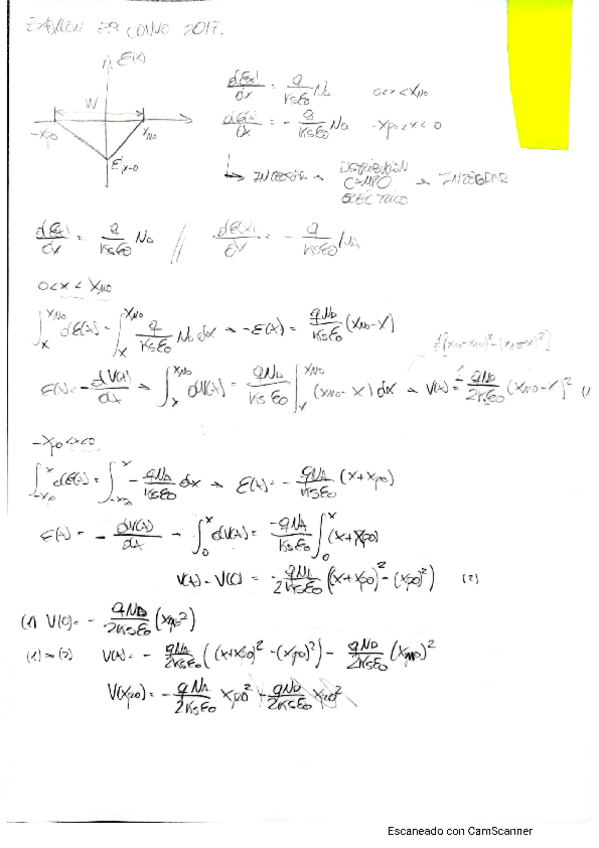 EXAMEN 29 JUNIO 2017.
E(x)
W
-xp0
xn0
E|x=0
dE(x)/dx = q/(KsE0) ND 0<x<xn0
dE(x)/dx = - q/(KsE0) NA -xp0<x<0
DISTRIBUCIÓN
CAMPO → INTEGRAR
ELÉCTRICO
dE(x)/dx = q/(KsE0) ND // dE(x)/dx = - q/(KsE0) NA
0<x<xn0
∫_x^xn0 dE(x) = ∫_x^xn0 q/(KsE0) ND dx → -E(x) = qND/(KsE0) (xn0-x)
E(x) = - dV(x)/dx → ∫_x^xn0 dV(x) = qND/(KsE0) ∫_x^xn0 (xn0-x) dx → V(x) = - qND/(2KsE0) (xn0-x)² (1)
-xp0<x<0
∫_-xp0^x dE(x) = ∫_-xp0^x - qNA/(KsE0) dx → E(x) = - qNA/(KsE0) (x+xp0)
E(x) = - dV(x)/dx - ∫_0^x dV(x) = -qNA/(KsE0) ∫_0^x (x+xp0)
V(x) - V(0) = - qNA/(2KsE0) ((x+xp0)² - (xp0)²) (2)
(1) V(0) = - qND/(2KsE0) (xn0²)
(1)→(2) V(x) = - qNA/(2KsE0) ((x+xp0)² - (xp0)²) - qND/(2KsE0) (xn0)²
V(xp0) = - qNA/(2KsE0) xp0² - qND/(2KsE0) xn0²
Escaneado con CamScanner